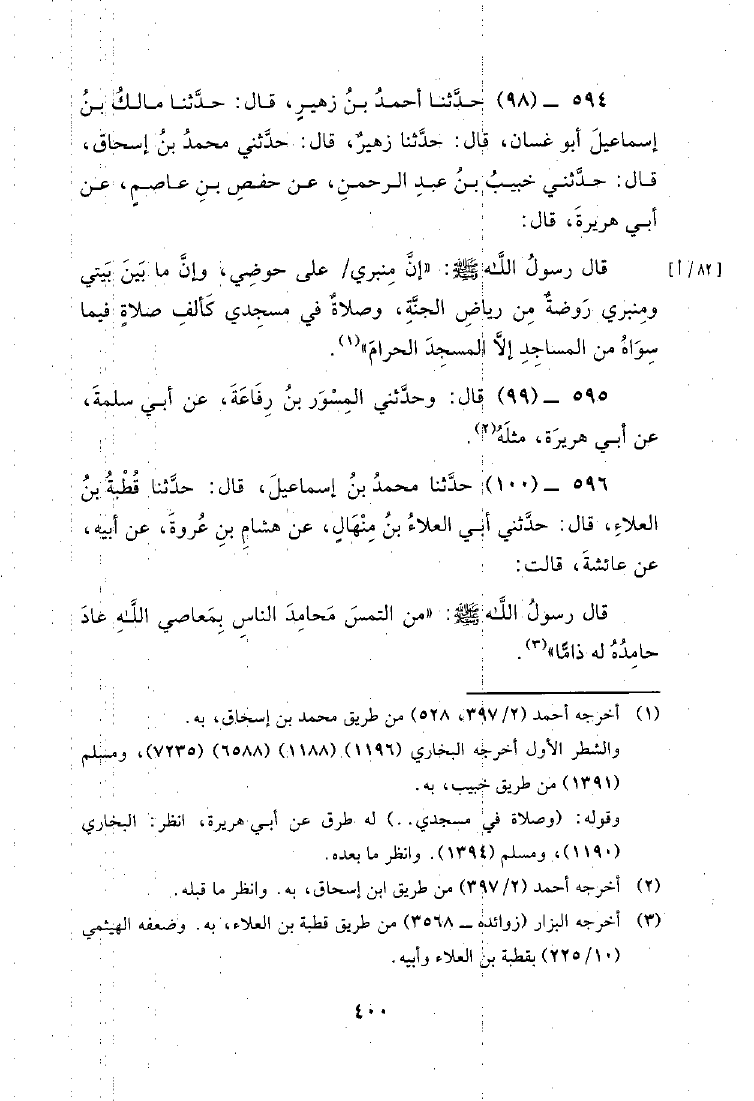 ٥٩٤ ــ (٩٨) حدَّثنا أحمدُ بنُ زهيرٍ، قال: حدَّثنا مالكُ بنُ
إسماعيلَ أبو غسان، قال: حدَّثنا زهيرٌ، قال: حدَّثني محمدُ بنُ إسحاق،
قال: حدَّثني خبيبُ بنُ عبدِ الرحمنِ، عن حفصِ بنِ عاصمٍ، عن
أبي هريرةَ، قال:
[٨٢/أ] قال رسولُ اللَّه ﷺ: «إنَّ مِنبري/ على حوضِي، وإنَّ ما بَينَ بَيتي
ومِنبري رَوضةٌ مِن رياضِ الجنَّةِ، وصلاةٌ في مسجدي كَألفِ صلاةٍ فيما
سِوَاهُ من المساجدِ إلاَّ المسجدَ الحرامَ»(١).
٥٩٥ ــ (٩٩) قال: وحدَّثني المِسْوَر بنُ رِفَاعَةَ، عن أبي سلمةَ،
عن أبي هريرَة، مثلَهُ(٢).
٥٩٦ ــ (١٠٠) حدَّثنا محمدُ بنُ إسماعيلَ، قال: حدَّثنا قُطْبةُ بنُ
العلاءِ، قال: حدَّثني أبي العلاءُ بنُ مِنْهَالٍ، عن هشامِ بنِ عُروةَ، عن أبيه،
عن عائشةَ، قالت:
قال رسولُ اللَّه ﷺ: «من التمسَ مَحامِدَ الناسِ بِمَعاصِي اللَّهِ عادَ
حامِدُهُ له ذامًّا»(٣).
(١) أخرجه أحمد (٣٩٧/٢، ٥٢٨) من طريق محمد بن إسحاق، به.
والشطر الأول أخرجه البخاري (١١٩٦) (١١٨٨) (٦٥٨٨) (٧٢٣٥)، ومسلم
(١٣٩١) من طريق خبيب، به.
وقوله: (وصلاة في مسجدي..) له طرق عن أبي هريرة، انظر: البخاري
(١١٩٠)، ومسلم (١٣٩٤). وانظر ما بعده.
(٢) أخرجه أحمد (٣٩٧/٢) من طريق ابن إسحاق، به. وانظر ما قبله.
(٣) أخرجه البزار (زوائده ــ ٣٥٦٨) من طريق قطبة بن العلاء، به. وضعفه الهيثمي
(٢٢٥/١٠) بقطبة بن العلاء وأبيه.
٤٠٠